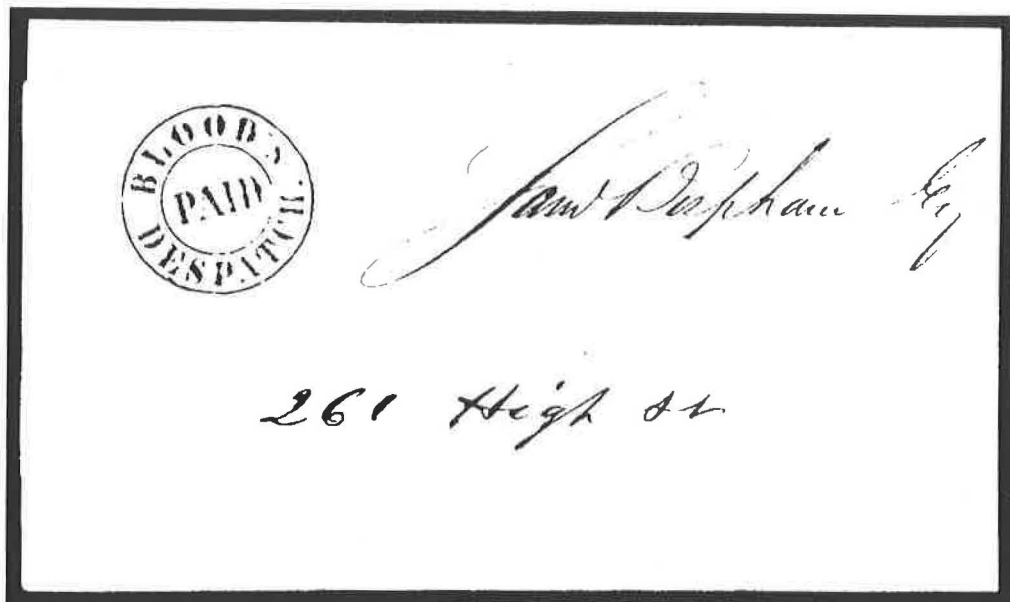 BLOOD'S DESPATCH.
PAID
Saml Bispham Esq
261 High St